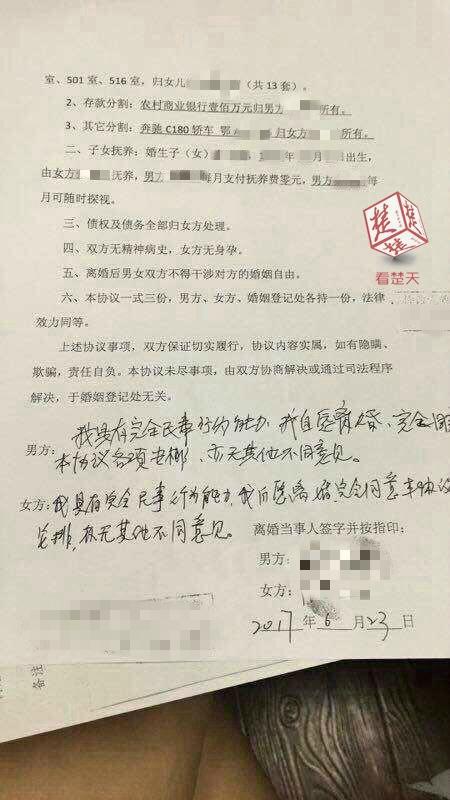 室、501室、516室，归女儿（共13套）。
2、存款分割：农村商业银行壹佰万元归男方所有。
3、其它分割：奔驰C180轿车 鄂归女方所有。
二、子女抚养：婚生子（女），年月日出生，
由女方抚养，男方每月支付抚养费零元，男方每
月可随时探视。
三、债权及债务全部归女方处理。
四、双方无精神病史，女方无身孕。
五、离婚后男女双方不得干涉对方的婚姻自由。
六、本协议一式三份，男方、女方、婚姻登记处各持一份，法律
效力同等。
上述协议事项，双方保证切实履行，协议内容实属，如有隐瞒、
欺骗，责任自负。本协议未尽事项，由双方协商解决或通过司法程序
解决，于婚姻登记处无关。
我具有完全民事行为能力，我自愿离婚，完全同
男方：本协议各项安排，亦无其他不同意见。
女方：我具有完全民事行为能力，我自愿离婚完全同意本协议
安排，亦无其他不同意见。
离婚当事人签字并按指印：
男方：
女方：
2017年6月23日
楚
楚
看楚天
备注